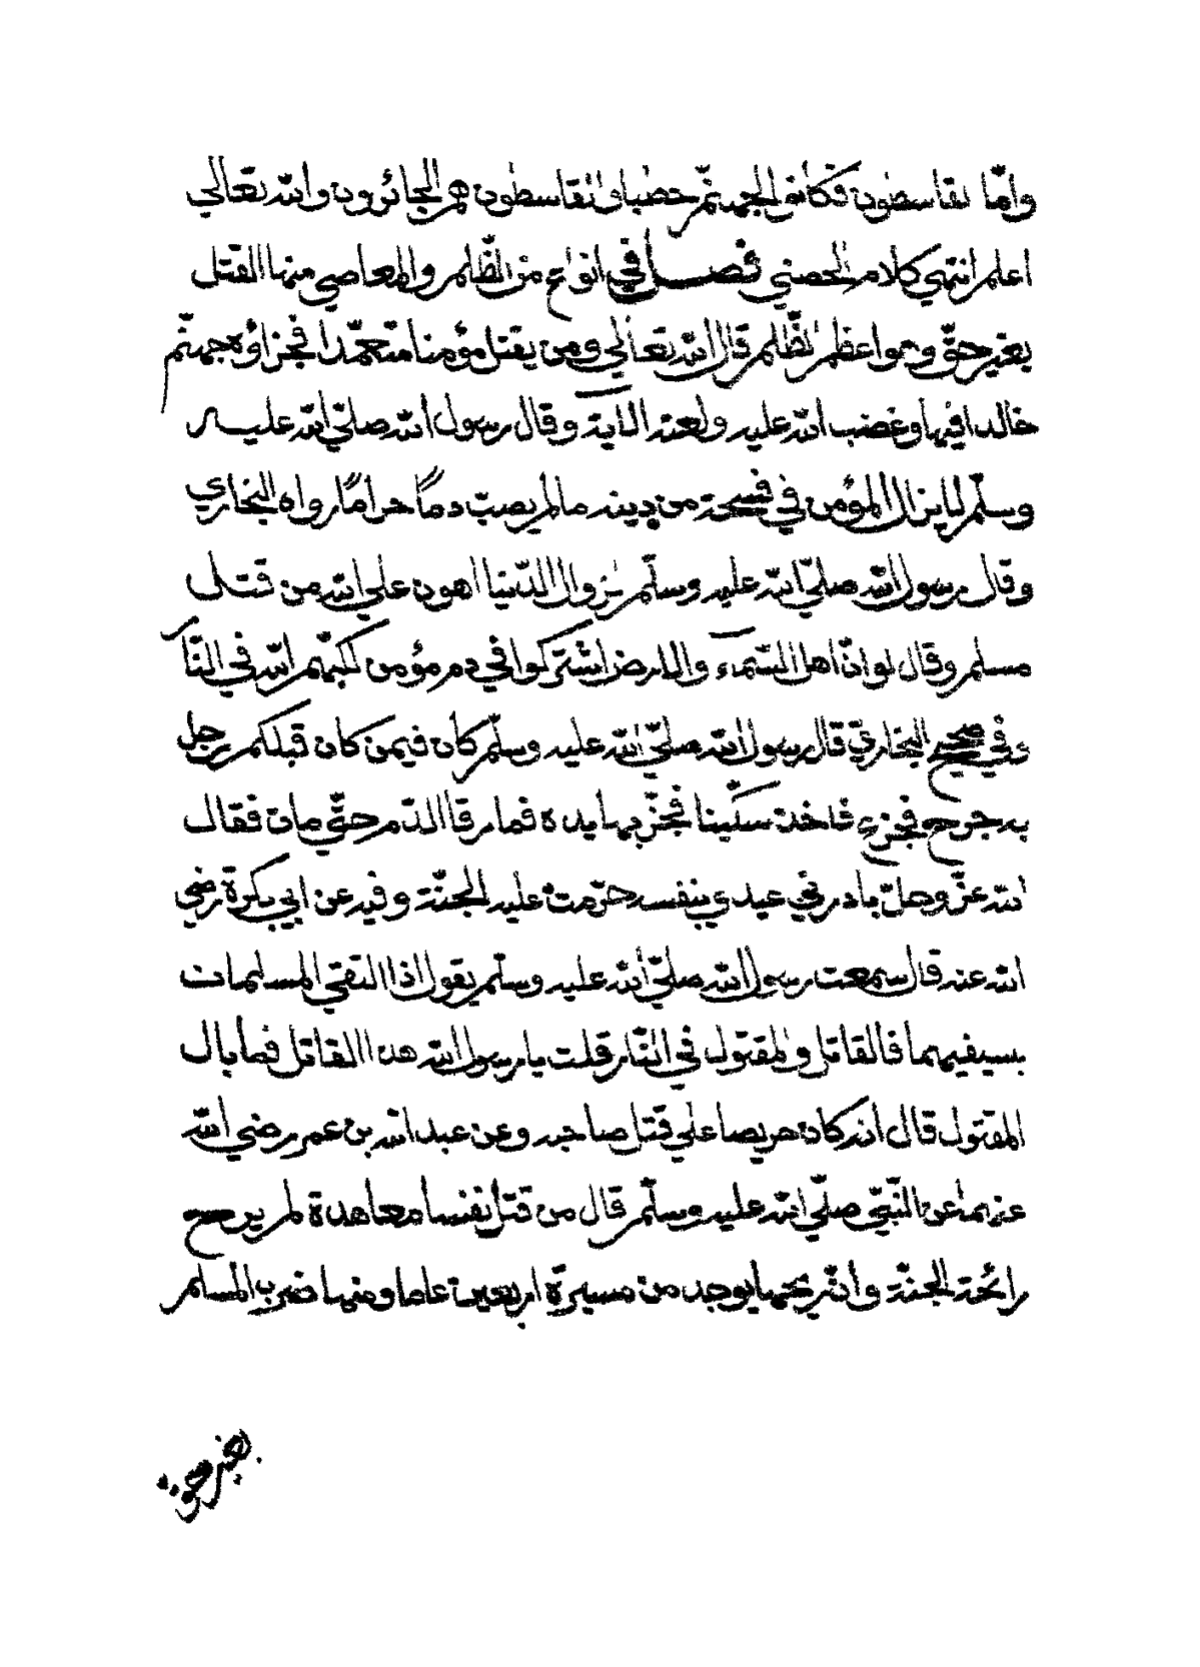 وامّا القاسطون فكانوا لجهنّم حطبا والقاسطون هم الجائرون والله تعالي
اعلم انتهي كلام الحصني فصل في انواع من الظّلم والمعاصي منها القتل
بغير حقّ وهو اعظم الظّلم قال الله تعالي ومن يقتل مؤمنا متعمّدا فجزاؤه جهنّم
خالدا فيها وغضب الله عليه ولعنه الاية وقال رسول الله صلّي الله عليه
وسلّم لايزال المؤمن في فسحة من دينه مالم يصب دمًا حرامًا رواه البخاري
وقال رسول الله صلّي الله عليه وسلّم لزوال الدّنيا اهون علي الله من قتل
مسلم وقال لو انّ اهل السّماء والارض اشتركوا في دم مؤمن لكبّهم الله في النّار
وفي صحيح البخاريّ قال رسول الله صلّي الله عليه وسلّم كان فيمن كان قبلكم رجل
به جرح فجزع فاخذ سكّينا فجزّ بها يده فما رقا الدّم حتّي مات فقال
الله عزّ وجلّ بادرني عبدي بنفسه حرّمت عليه الجنّة وفيه عن ابي بكرة رضي
الله عنه قال سمعت رسول الله صلّي الله عليه وسلّم يقول اذا التقي المسلمان
بسيفيهما فالقاتل والمقتول في النّار قلت يا رسول الله هذا القاتل فما بال
المقتول قال انه كان حريصا علي قتل صاحبه وعن عبد الله بن عمر رضي الله
عنهما عن النّبيّ صلّي الله عليه وسلّم قال من قتل نفسا معاهدة لم يرح
رائحة الجنّة وانّ ريحها يوجد من مسيرة اربعين عاما ومنها ضرب المسلم
بغير حق